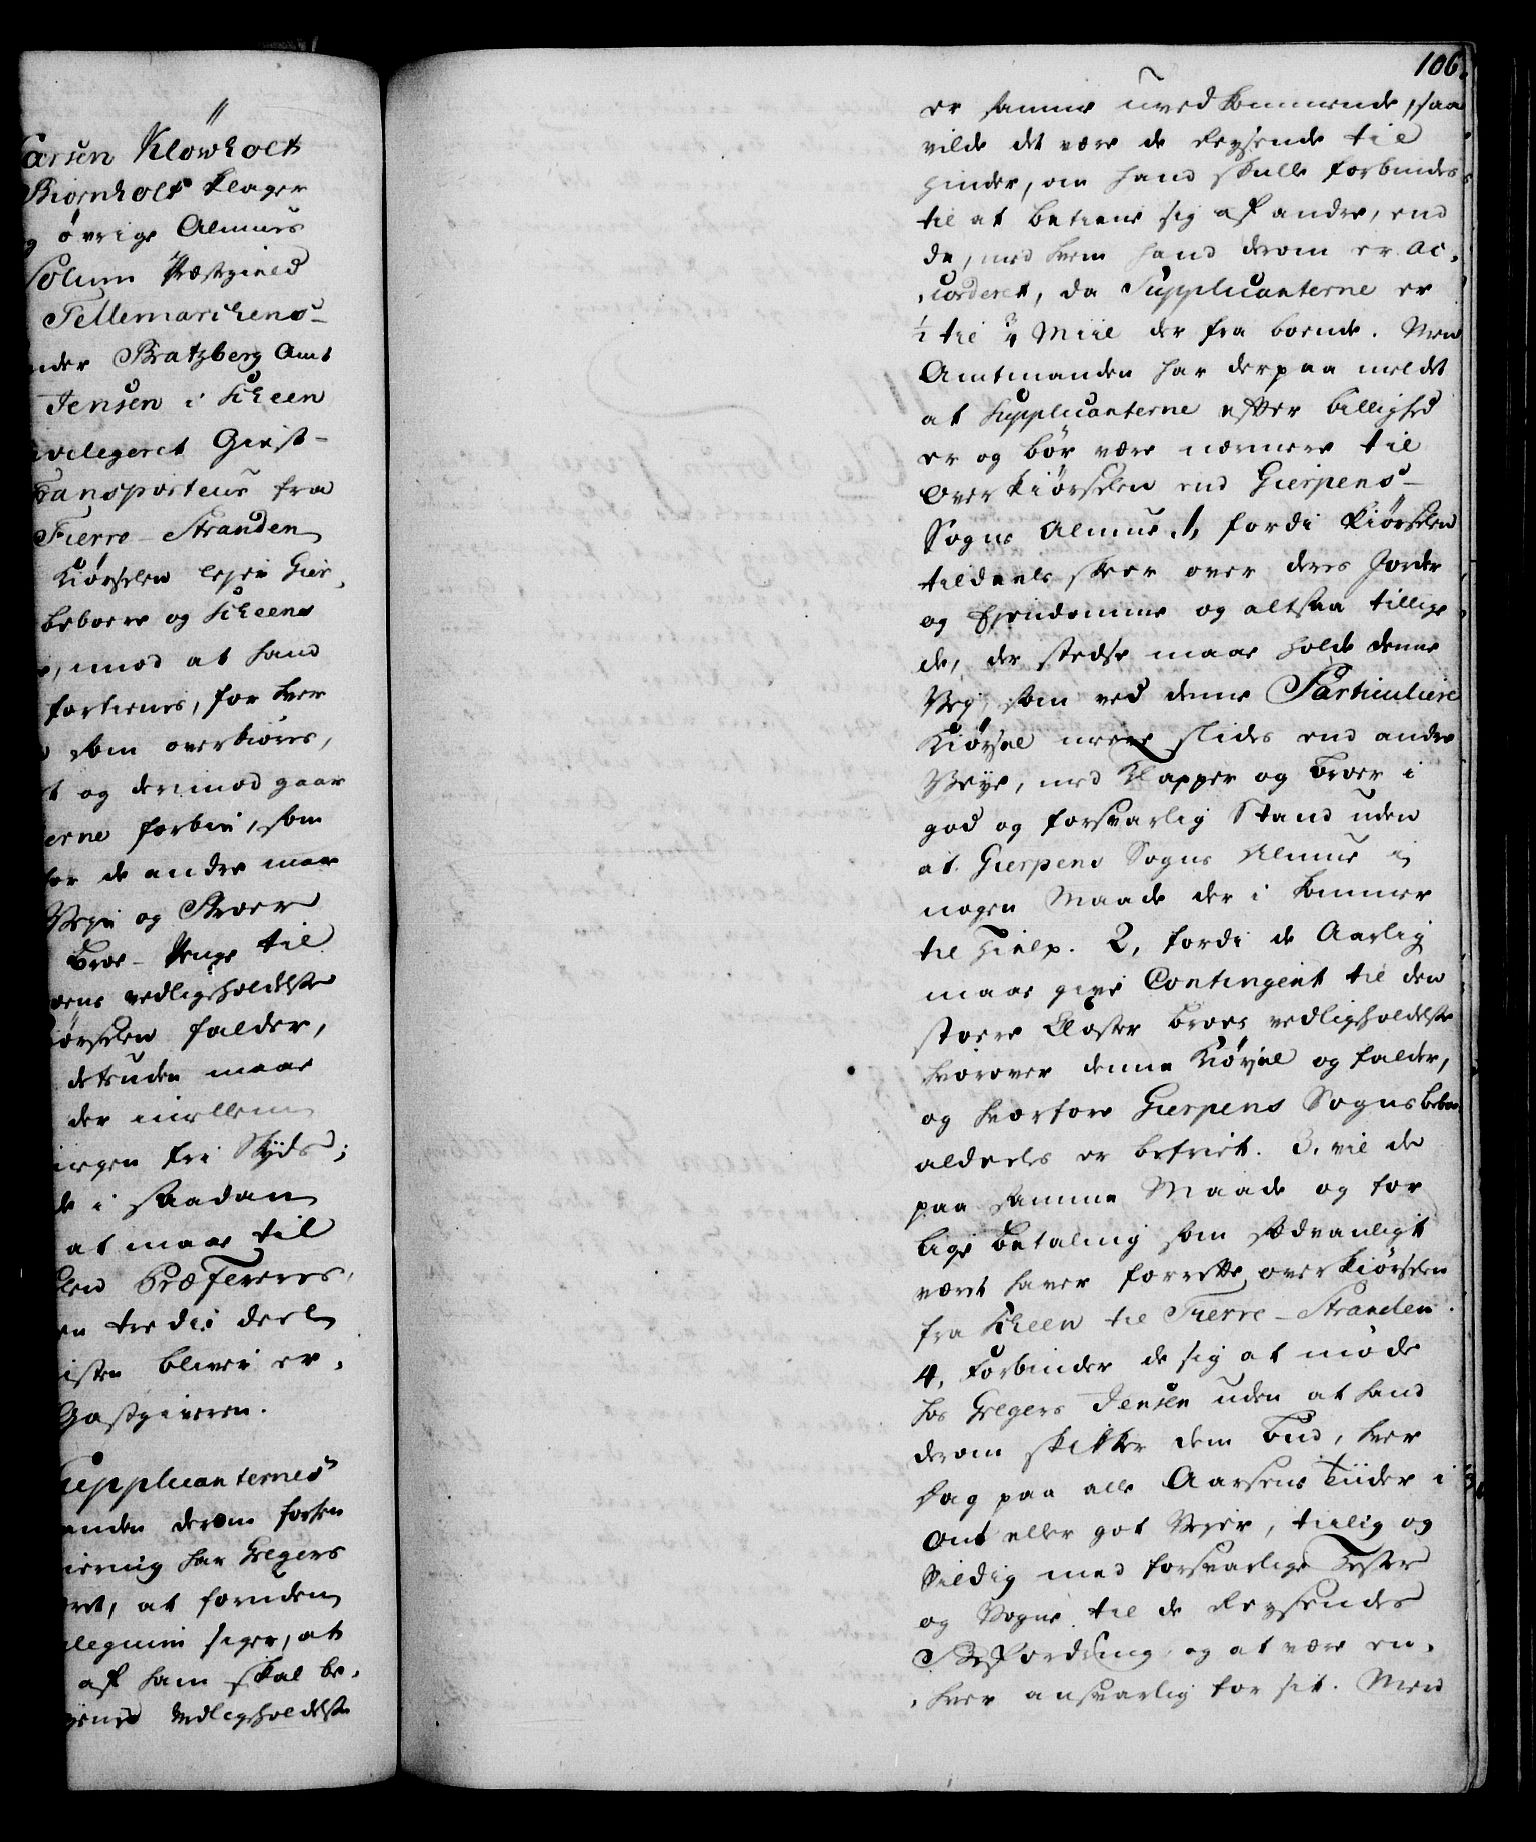 arsen Klowholt
Biørnholt klager
øvrige Almues
Solum Præstgield
Tellemarchens-
nder Bratzberg Amt
Jensen i Scheen
vilegeret Giest-
transporteur fra
Fierre-Stranden
Kiørselen leje Gier-
beboere og Scheens
, imod at hand
fortienes, for hver
som overkiøres,
og derimod gaar
erne forbi, som
for de andre maa
Veje og Broer
Broe-Penge til
vedligeholdelse
iørselen falder,
desuden maae
der imellem
ingen fri Skyds;
de i saadan
at maae til
len Præfereres,
en tredie deel
isten bliver er-
Gastgiveren.
Supplicanternes
anden derom forhen
har Gregers
ret, at forinden
legium siger, at
af ham skal be-
Vedligeholdelse
106.
er samme uvedkommende, saa
vilde det være de Reysende til
Hinder, om hand skulle forbindes
til at betiene sig af andre, end
de, med hvem hand derom er ac-
corderet, da Supplicanterne er
½ til ¾ Miil der fra boende. Men
Amtmanden har derpaa meldet
at Supplicanterne efter billighed
er og bør være nærmere til
Overkiørselen end Gierpens-
Sogns Almue. 1, fordi Kiørselen
tildeels skeer over deres Jorder
og Eyendomme og altsaa tillige
de, der stedse maae holde denne
Vej, som ved denne Particuliere
Kiørsel meere slides end andre
Veye, med Klapper og Broer i
god og forsvarlig Stand uden
at Gierpens Sogns Almue i
nogen Maade der i kommer
til Hielp. 2, fordi de Aarlig
maae give Contingent til den
stoere Kloster Broes vedligeholdelse
hvorover denne Kiørsel og falder,
og hvorfore Gierpens Sogns beboe
aldeeles er befriet. 3, vil de
paa samme Maade og for
lige Betaling som sædvanligt
været haver forrette overkiørselen
fra Scheen til Fierre-Stranden.
4, Forbinder de sig at møde
hos Gregers Jensen uden at hand
derom skikker dem Bud, hver
Dag paa alle Aarsens Tiider i
Ont eller got Vejr, tiilig og
Sildig med forsvarlige Heste
og Vogne til de Reysendes
Befordring, og at være en-
hver ansvarlig for sit. Men